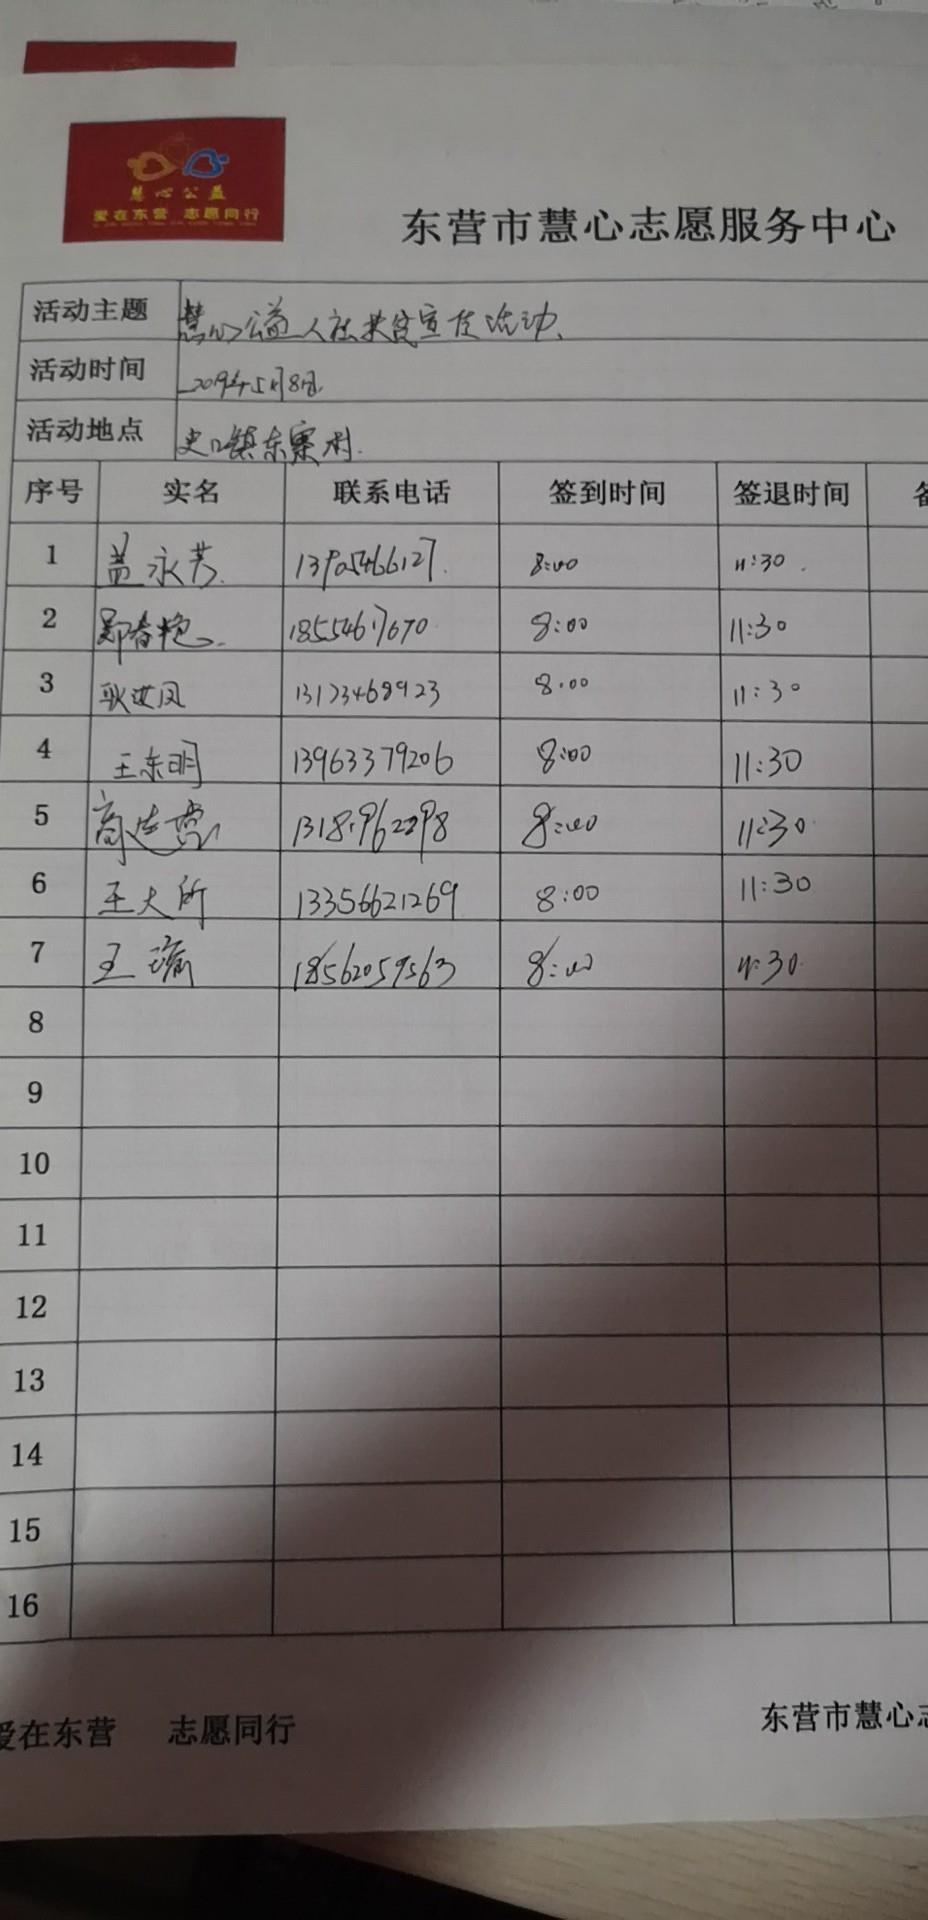 慧心公益
爱在东营 志愿同行
东营市慧心志愿服务中心
活动主题 慧心公益人社扶贫宣传活动
活动时间 2019年5月8日
活动地点 史口镇东寨村.
序号 实名 联系电话 签到时间 签退时间
1 盖永芳 13905466127. 8:00 11:30.
2 郑春艳 18554617670 8:00 11:30
3 耿进凤 8:00 11:30
4 王东明 13963379206 8:00 11:30
5 13181962298 8:00 11:30
6 王大所 13356621269 8:00 11:30
7 王瑜 18562059563 8:00 11:30
8
9
10
11
12
13
14
15
16
爱在东营 志愿同行 东营市慧心志